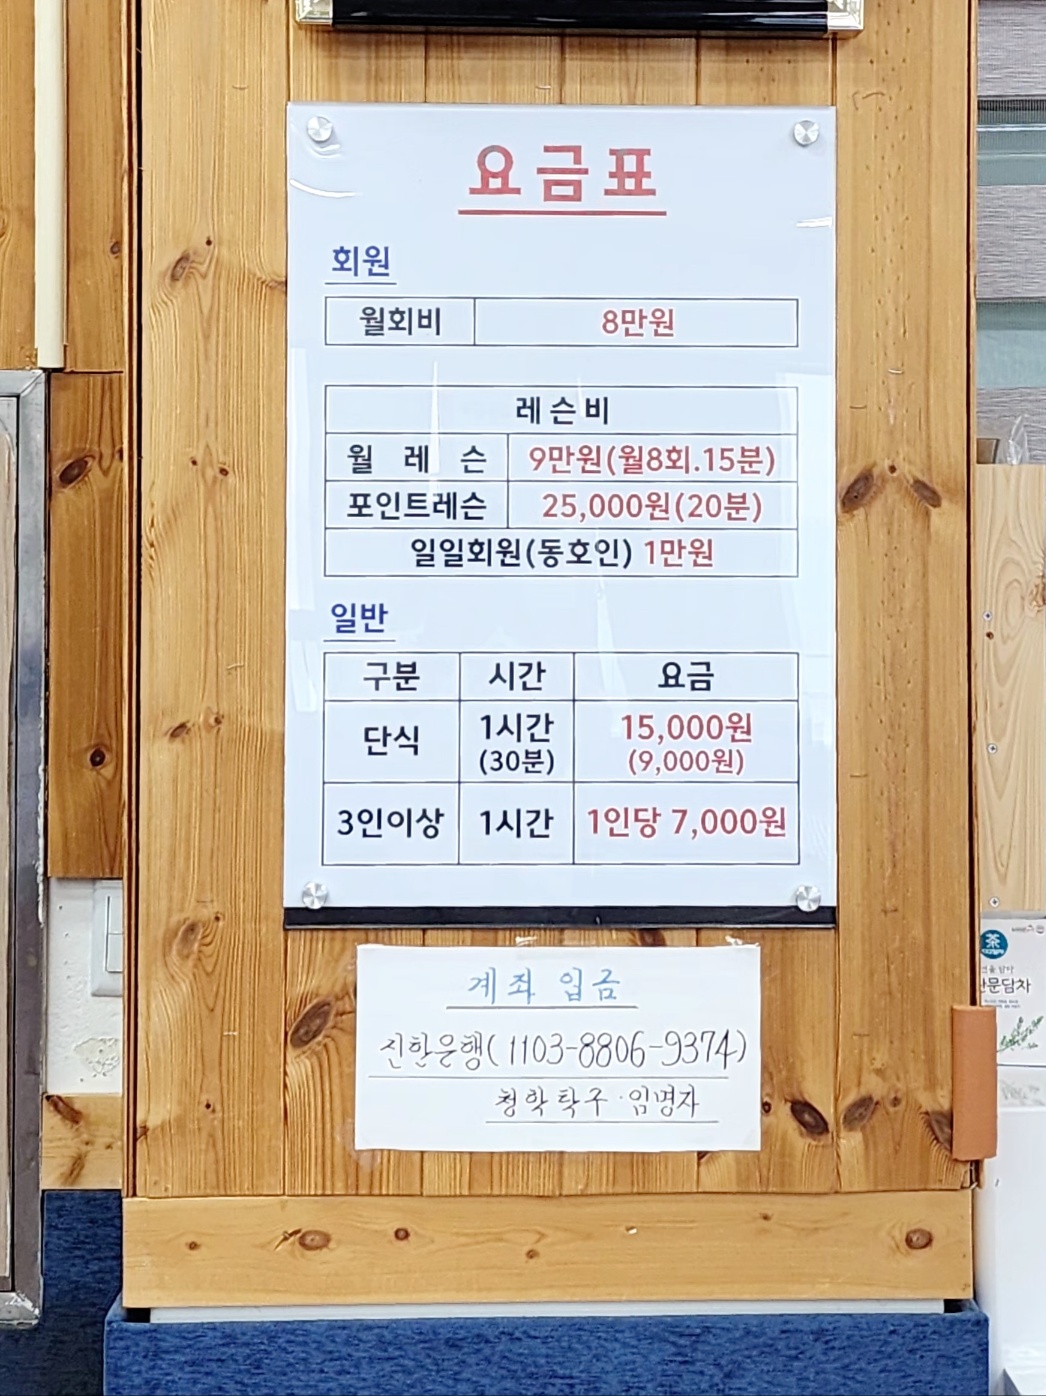 요금표
회원
월회비 8만원
레슨비
월 레 슨 9만원(월8회.15분)
포인트레슨 25,000원(20분)
일일회원(동호인) 1만원
일반
구분 시간 요금
단식 1시간 15,000원
(30분) (9,000원)
3인이상 1시간 1인당 7,000원
계좌 입금
신한은행(1103-8806-9374)
청학탁구·임명자
茶
문담차